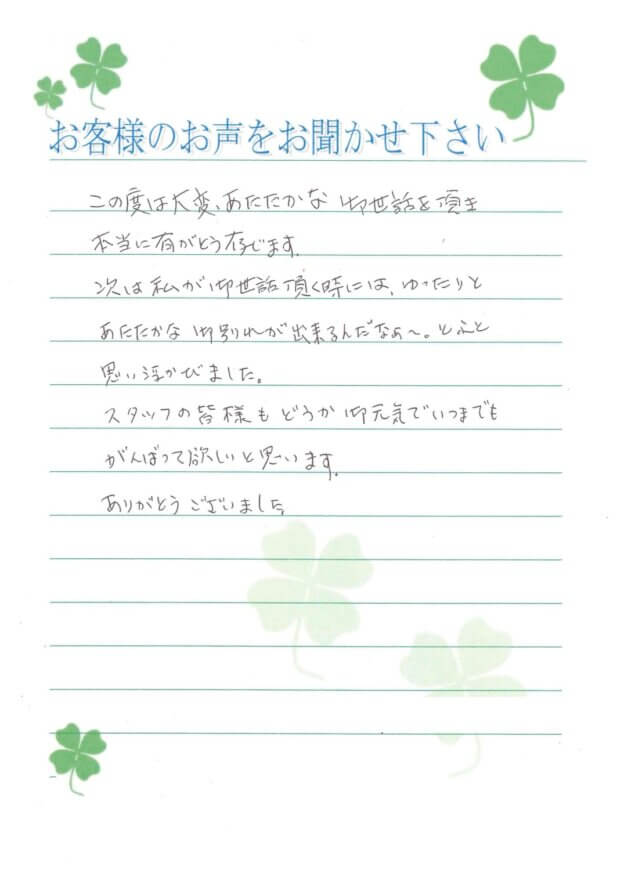 お客様のお声をお聞かせ下さい
この度は大変、あたたかな 御世話を頂き
本当に有がとう存じます。
次は私が御世話頂く時には、ゆったりと
あたたかな御別れが出来るんだなぁ〜。とふと
思い浮かびました。
スタッフの皆様もどうか御元気でいつまでも
がんばって欲しいと思います。
ありがとうございました。